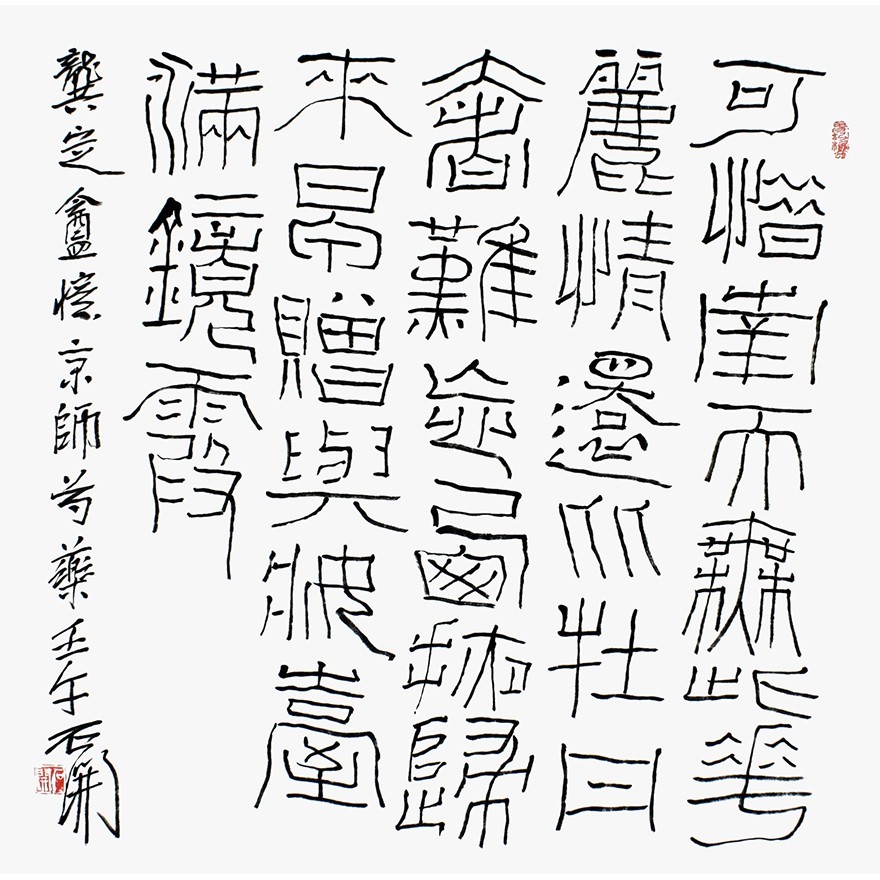 可惜南天無此花
麗情還比牡丹
奢難忘西掖歸
來早贈與妝臺
滿鏡霞
龔定盦憶京師芍藥壬午石開